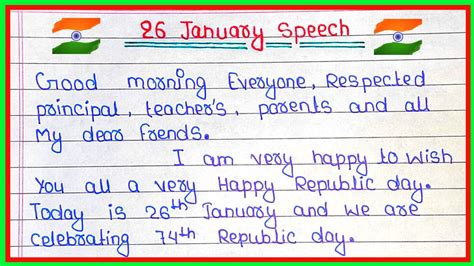 26 January Speech
Good morning Everyone, Respected
principal, teacher's, parents and all
My dear frends.
I am very happy to wish
You all a very Happy Republic day.
Today is 26th January and we are
celebrating 74th Republic day.